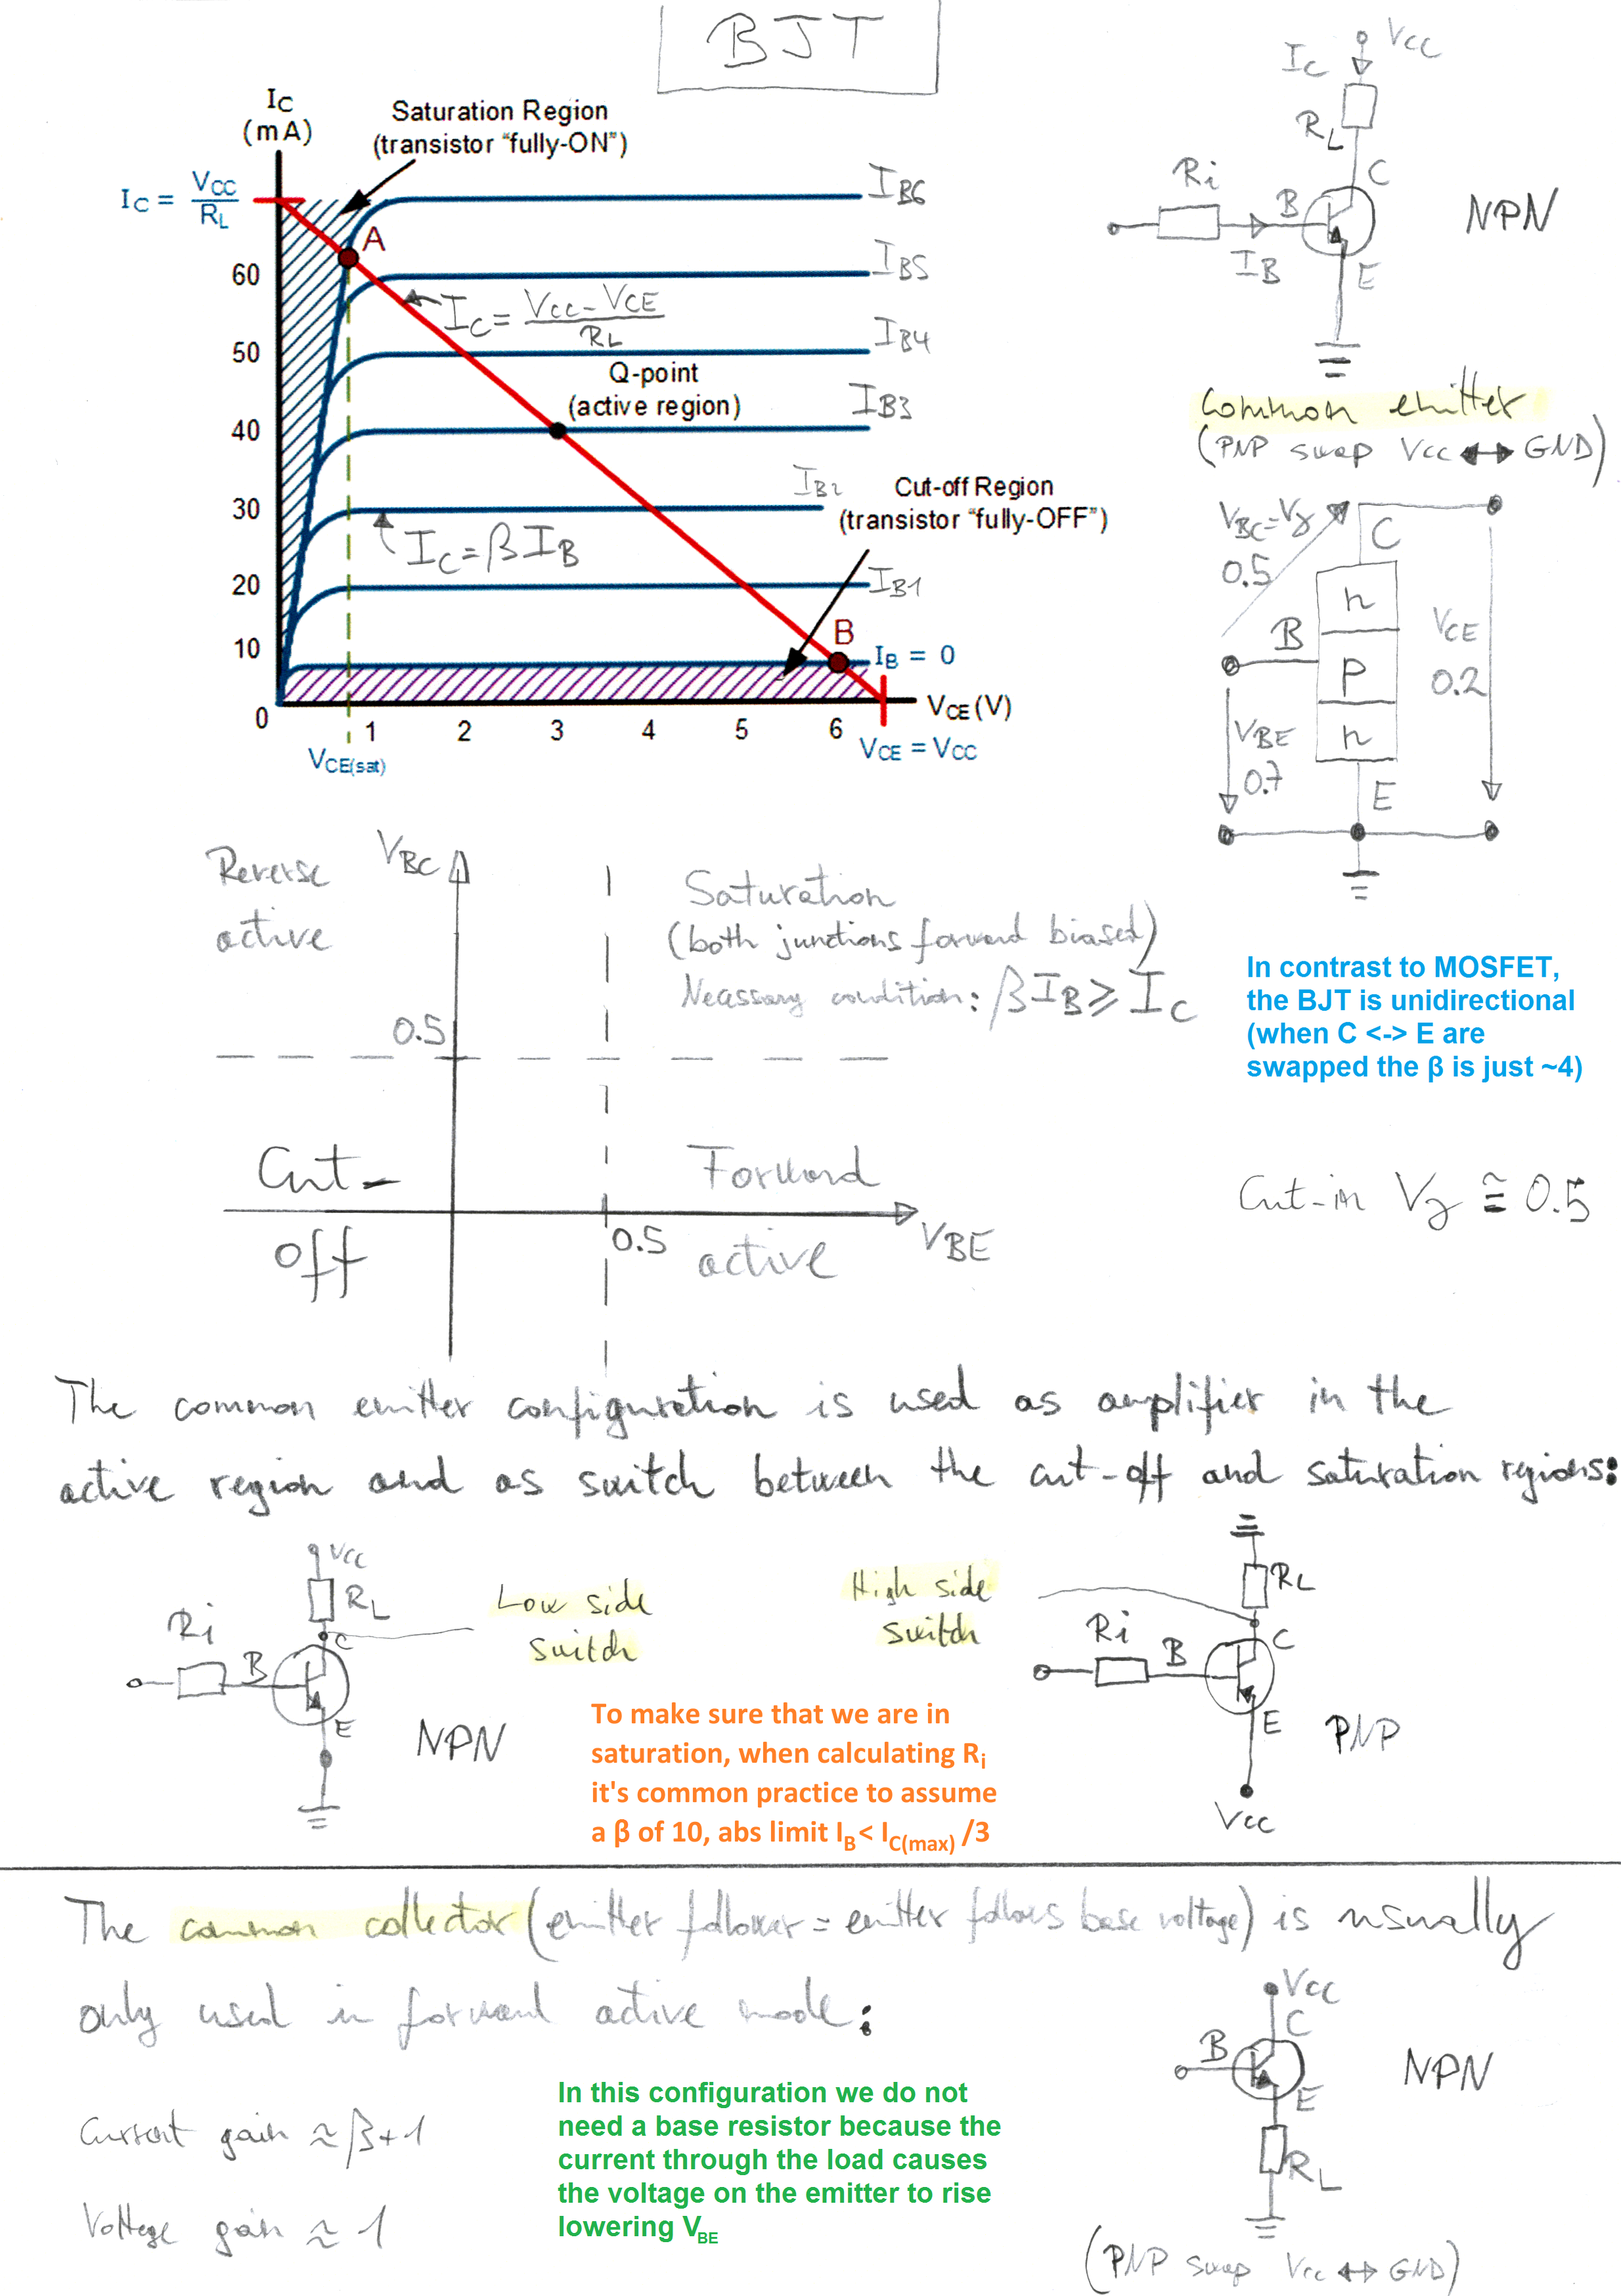 BJT
I_C
(mA)
Saturation Region
(transistor "fully-ON")
I_C = V_CC / R_L
A
I_B6
60
I_B5
I_C = (V_CC - V_CE) / R_L
50
I_B4
Q-point
(active region)
40
I_B3
30
I_B2
I_C = βI_B
Cut-off Region
(transistor "fully-OFF")
20
I_B1
10
B
I_B = 0
0
1
2
3
4
5
6
V_CE (V)
V_CE(sat)
V_CE = V_CC
V_CC
I_C
R_L
Ri
C
B
I_B
E
NPN
Common emitter
(PNP swap Vcc ↔ GND)
V_BC = Vγ
0.5
C
n
B
p
V_CE
0.2
n
V_BE
0.7
E
Reverse
active
V_BC
Saturation
(both junctions forward biased)
Necassary condition: βI_B ≥ I_C
0.5
Cut-
off
Forward
active
0.5
V_BE
In contrast to MOSFET,
the BJT is unidirectional
(when C <-> E are
swapped the β is just ~4)
Cut-in Vγ ≅ 0.5
The common emitter configuration is used as amplifier in the
active region and as switch between the cut-off and saturation regions:
Vcc
R_L
Ri
B
C
E
NPN
Low side
switch
High side
switch
R_L
Ri
B
C
E
PNP
Vcc
To make sure that we are in
saturation, when calculating R_i
it's common practice to assume
a β of 10, abs limit I_B < I_C(max) /3
The common collector (emitter follower = emitter follows base voltage) is usually
only used in forward active mode:
Current gain ≈ β+1
Voltage gain ≈ 1
In this configuration we do not
need a base resistor because the
current through the load causes
the voltage on the emitter to rise
lowering V_BE
Vcc
C
B
E
R_L
NPN
(PNP swap Vcc ↔ GND)